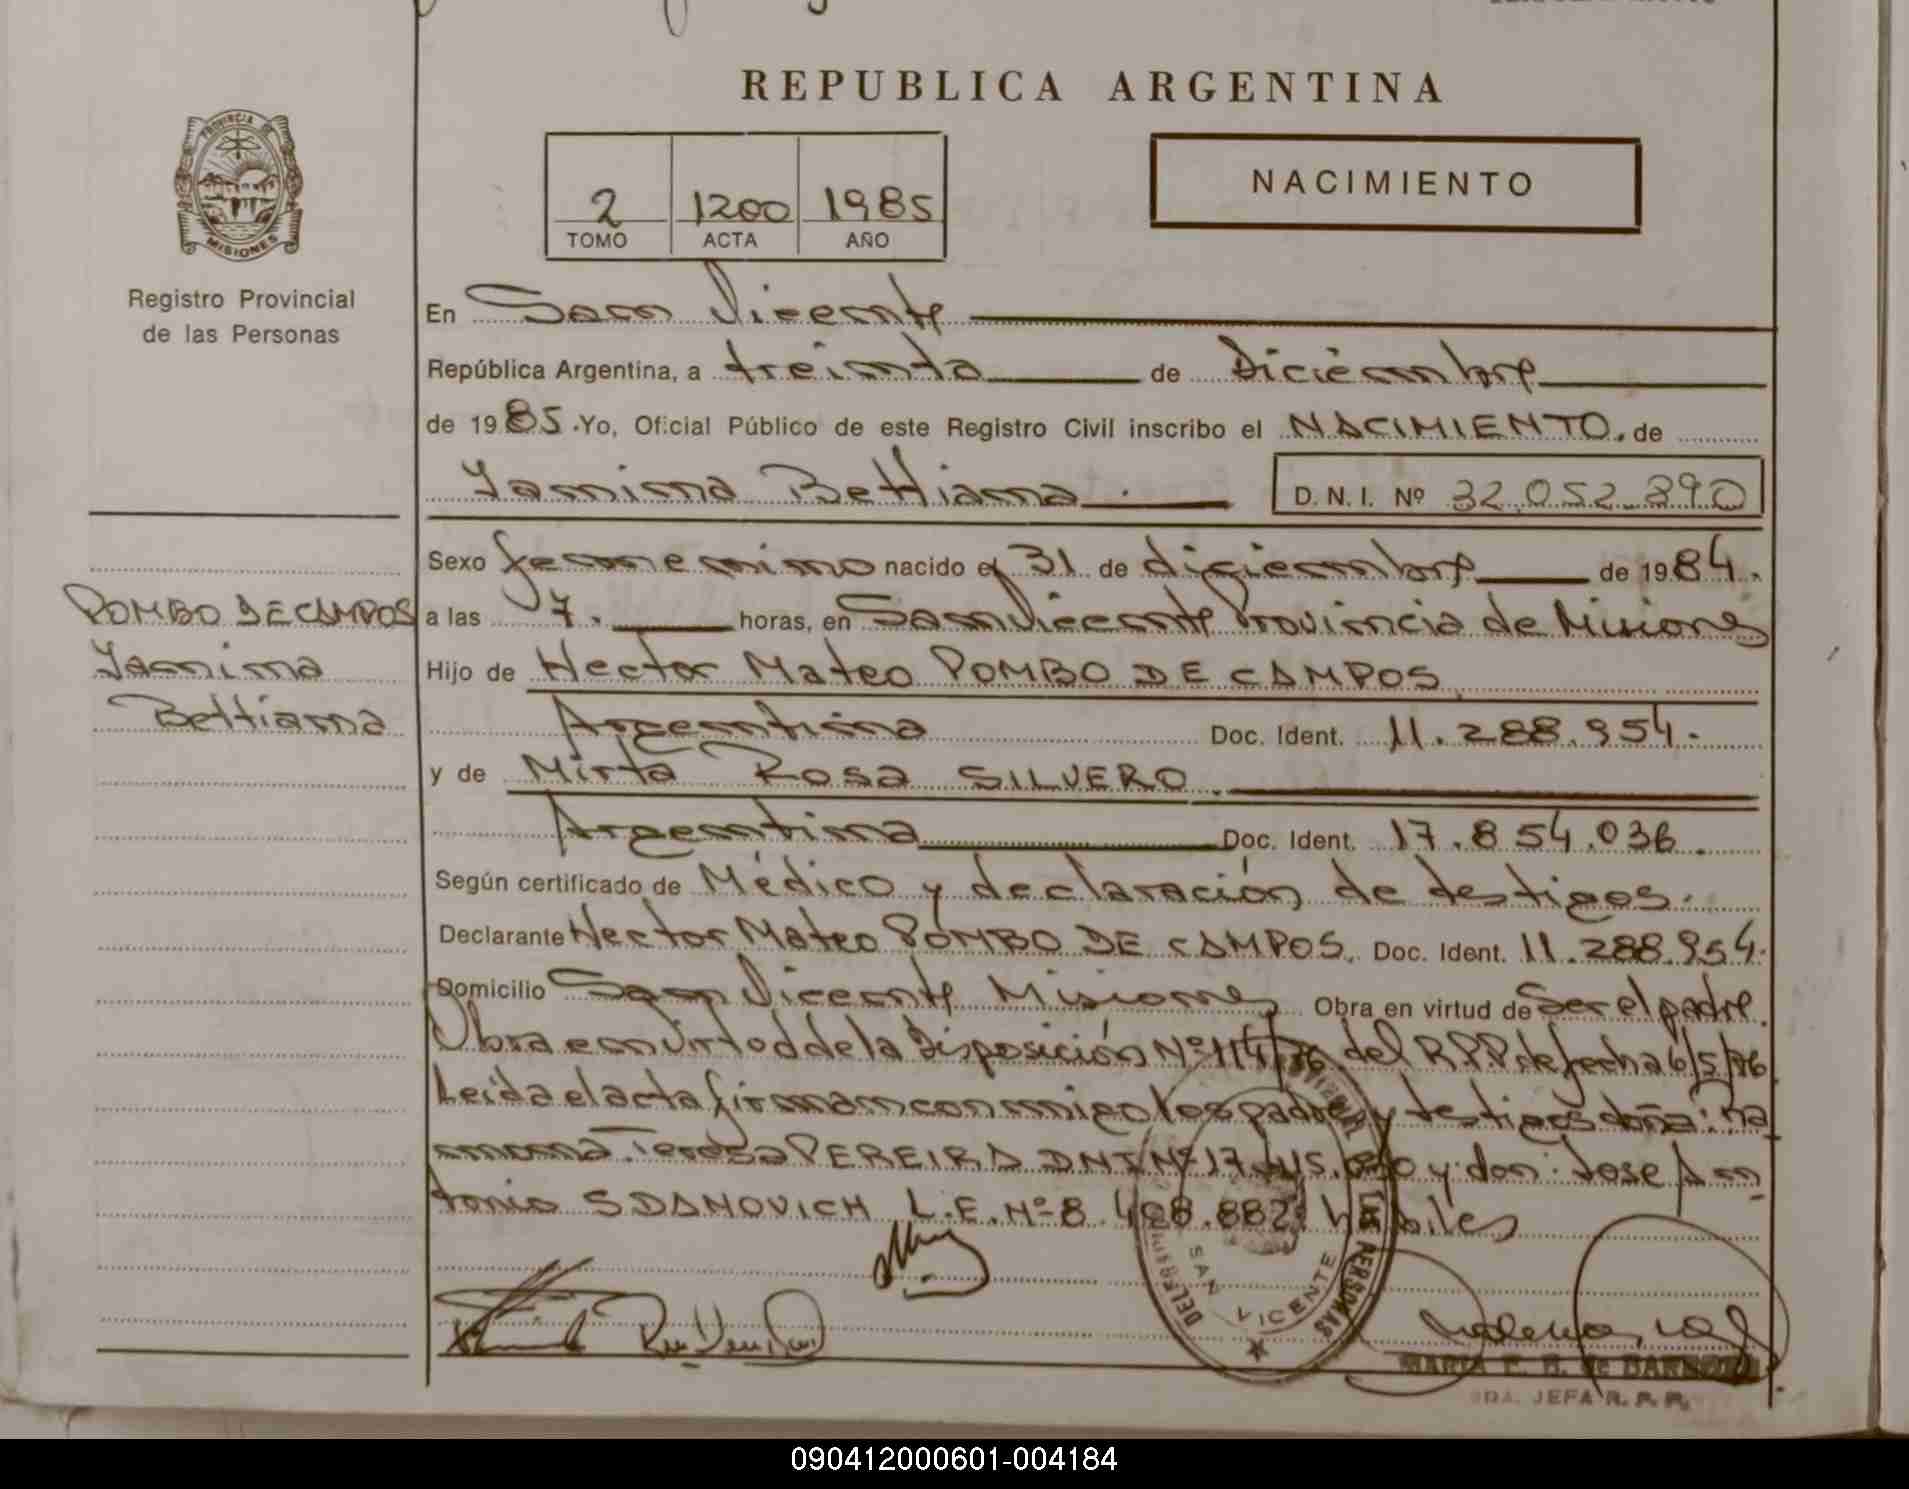 REPUBLICA ARGENTINA
PROVINCIA DE
MISIONES
Registro Provincial
de las Personas
2 1200 1985
TOMO ACTA AÑO
NACIMIENTO
En San Vicente
República Argentina, a treinta de Diciembre
de 1985. Yo, Oficial Público de este Registro Civil inscribo el NACIMIENTO. de
Yanina Bettiana. D.N.I. Nº 32.052.890
Sexo femenino nacido el 31 de diciembre de 1984.
POMBO DE CAMPOS
Yanina
Bettiana
a las 7. horas, en San Vicente Provincia de Misiones
Hijo de Hector Mateo POMBO DE CAMPOS,
Argentina Doc. Ident. 11.288.954.
y de Mirta Rosa SILVERO.
Argentina Doc. Ident. 17.854.036.
Según certificado de Médico y declaración de testigos.
Declarante Hector Mateo POMBO DE CAMPOS. Doc. Ident. 11.288.954.
Domicilio San Vicente Misiones Obra en virtud de Ser el padre.
Obra en virtud de la Disposición Nº 114/76. del R.P.P. de fecha 6/5/76
Leída el acta firman conmigo los padres y testigos doña: Ra
mona Teresa PEREIRA DNI Nº 17. y don: Jose An
tonio SDANOVICH L.E. Nº 8.408.882: hábiles
LAS PERSONAS
SAN VICENTE
MARIA E. B. de
JEFA R. P. P.
090412000601-004184